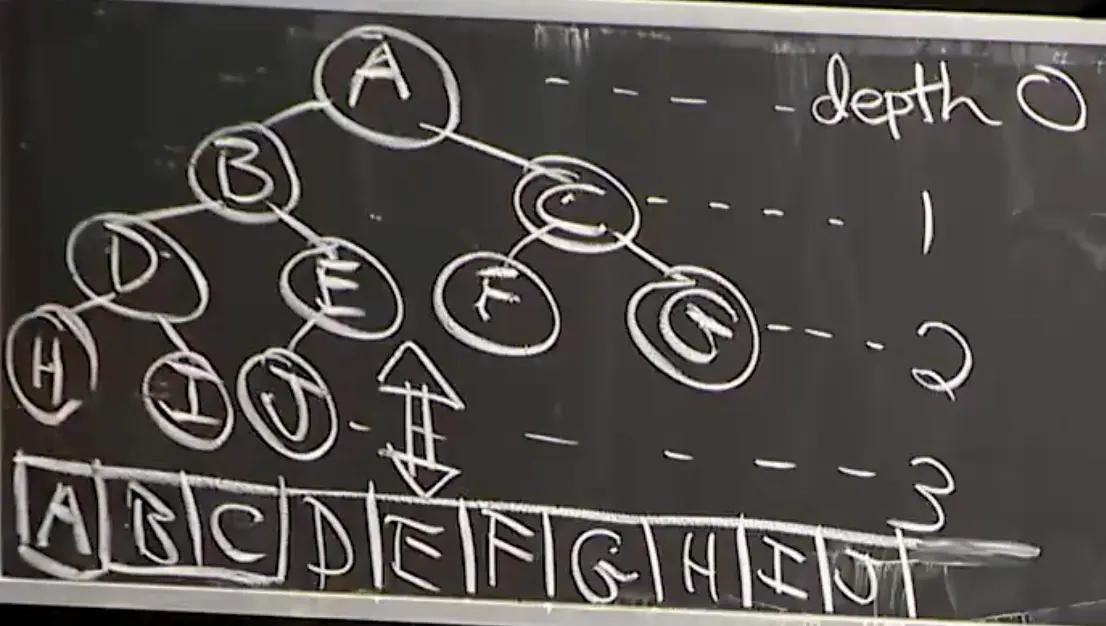 A depth 0
B C 1
D E F G 2
H I J 3
A B C D E F G H I J